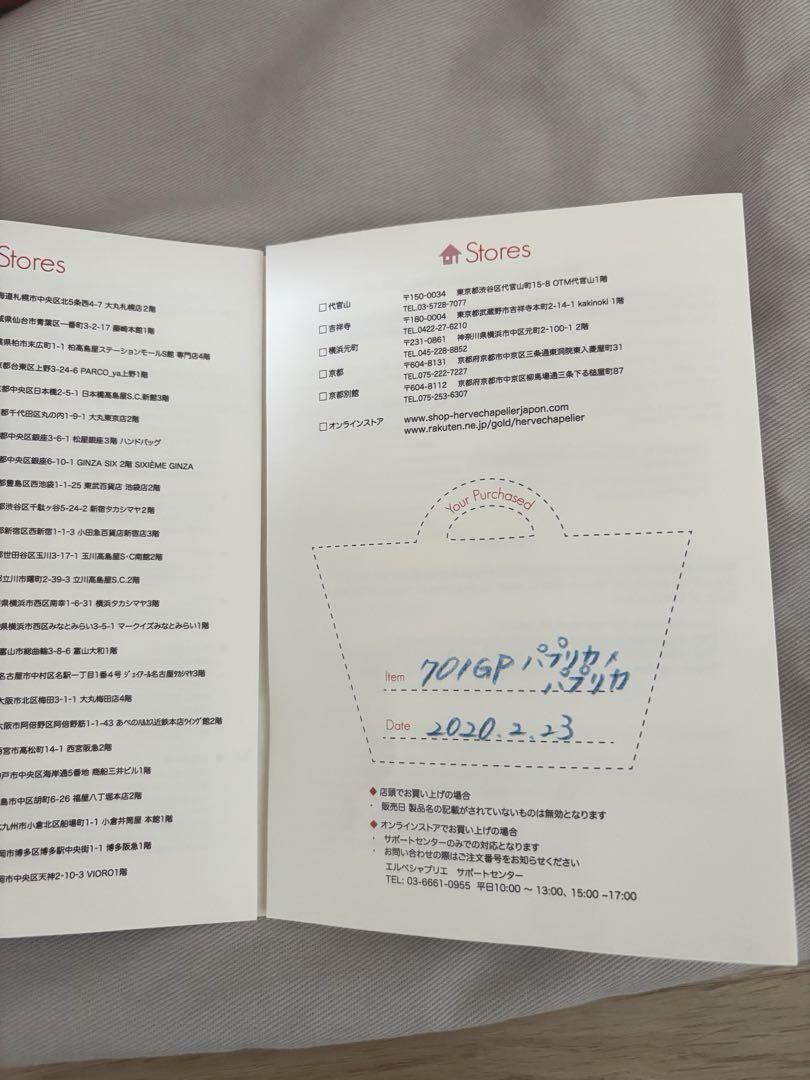 Stores
海道札幌市中央区北5条西4-7 大丸札幌店2階
城県仙台市青葉区一番町3-2-17 藤崎本館1階
県柏市末広町1-1 柏高島屋ステーションモールS館 専門店4階
京都台東区上野3-24-6 PARCO_ya上野1階
都中央区日本橋2-5-1 日本橋高島屋S.C.新館3階
都千代田区丸の内1-9-1 大丸東京店2階
都中央区銀座3-6-1 松屋銀座3階 ハンドバッグ
都中央区銀座6-10-1 GINZA SIX 2階 SIXIÈME GINZA
都豊島区西池袋1-1-25 東武百貨店 池袋店2階
都渋谷区千駄ヶ谷5-24-2 新宿タカシマヤ2階
都新宿区西新宿1-1-3 小田急百貨店新宿店3階
都世田谷区玉川3-17-1 玉川高島屋S・C南館2階
立川市曙町2-39-3 立川高島屋S.C.2階
県横浜市西区南幸1-6-31 横浜タカシマヤ3階
県横浜市西区みなとみらい3-5-1 マークイズみなとみらい1階
富山市総曲輪3-8-6 富山大和1階
名古屋市中村区名駅一丁目1番4号 ジェイアール名古屋タカシマヤ3階
大阪市北区梅田3-1-1 大丸梅田店4階
大阪市阿倍野区阿倍野筋1-1-43 あべのハルカス近鉄本店ウイング館2階
宮市高松町14-1 西宮阪急2階
戸市中央区海岸通5番地 商船三井ビル1階
島市中区胡町6-26 福屋八丁堀本店2階
九州市小倉北区船場町1-1 小倉井筒屋 本館1階
岡市博多区博多駅中央街1-1 博多阪急1階
岡市中央区天神2-10-3 VIORO1階
Stores
代官山 〒150-0034 東京都渋谷区代官山町15-8 OTM代官山1階
TEL.03-5728-7077
吉祥寺 〒180-0004 東京都武蔵野市吉祥寺本町2-14-1 kakinoki 1階
TEL.0422-27-6210
横浜元町 〒231-0861 神奈川県横浜市中区元町2-100-1 2階
TEL.045-228-8852
京都 〒604-8131 京都府京都市中京区三条通東洞院東入菱屋町31
TEL.075-222-7227
京都別館 〒604-8112 京都府京都市中京区柳馬場通三条下る槌屋町87
TEL.075-253-6307
オンラインストア www.shop-hervechapelierjapon.com
www.rakuten.ne.jp/gold/hervechapelier
Your Purchased
Item 701GP パプリカ×
パプリカ
Date 2020.2.23
◆ 店頭でお買い上げの場合
・ 販売日 製品名の記載がされていないものは無効となります
◆ オンラインストアでお買い上げの場合
・ サポートセンターのみでの対応となります
・ お問い合わせの際はご注文番号をお知らせください
エルベシャプリエ サポートセンター
TEL: 03-6661-0955 平日10:00 〜 13:00、15:00 ~17:00